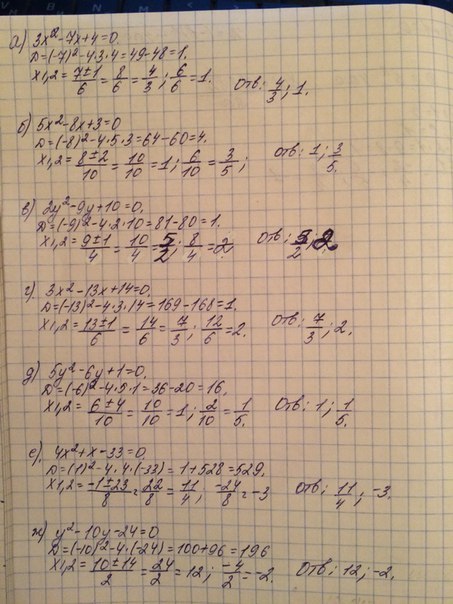 а) 3x²-7x+4=0.
D=(-7)²-4·3·4=49-48=1.
x1,2=7±1/6=8/6=4/3; 6/6=1. Отв: 4/3; 1.
б) 5x²-8x+3=0
D=(-8)²-4·5·3=64-60=4.
x1,2=8±2/10=10/10=1; 6/10=3/5; Отв: 1; 3/5.
в) 2y²-9y+10=0.
D=(-9)²-4·2·10=81-80=1.
x1,2=9±1/4=10/4=5/2; 8/4=2 Отв: 5/2; 2.
г) 3x²-13x+14=0.
D=(-13)²-4·3·14=169-168=1.
x1,2=13±1/6=14/6=7/3; 12/6=2. Отв: 7/3; 2.
д) 5y²-6y+1=0.
D=(-6)²-4·5·1=36-20=16.
x1,2=6±4/10=10/10=1; 2/10=1/5. Отв: 1; 1/5.
е) 4x²+x-33=0.
D=(1)²-4·4·(-33)=1+528=529.
x1,2=-1±23/8=22/8=11/4; -24/8=-3 Отв: 11/4; -3.
ж) y²-10y-24=0
D=(-10)²-4·(-24)=100+96=196
x1,2=10±14/2=24/2=12; -4/2=-2. Отв: 12; -2.